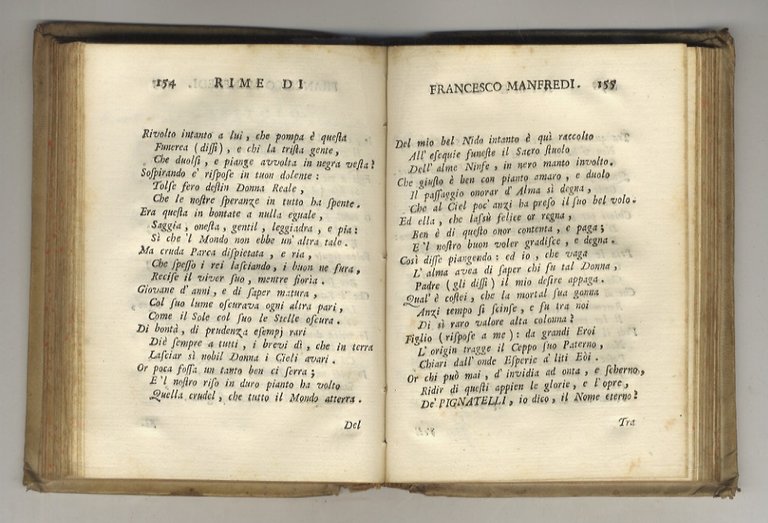 154 RIME DI
Rivolto intanto a lui, che pompa è queſta
Funerea (diſſi), e chi la triſta gente,
Che duolſi, e piange avvolta in negra veſta?
Soſpirando e' riſpoſe in tuon dolente:
Tolſe fero deſtin Donna Reale,
Che le noſtre ſperanze in tutto ha ſpente.
Era queſta in bontate a nulla eguale,
Saggia, oneſta, gentil, leggiadra, e pia:
Sì che 'l Mondo non ebbe un' altra tale.
Ma cruda Parca diſpietata, e ria,
Che ſpeſſo i rei laſciando, i buon ne fura,
Reciſe il viver ſuo, mentre fioria.
Giovane d'anni, e di ſaper matura,
Col ſuo lume oſcurava ogni altra pari,
Come il Sole col ſuo le Stelle oſcura.
Di bontà, di prudenza eſempj rari
Diè ſempre a tutti, i brevi dì, che in terra
Laſciar sì nobil Donna i Cieli avari.
Or poca foſſa un tanto ben ci ſerra;
E 'l noſtro riſo in duro pianto ha volto
Quella crudel, che tutto il Mondo atterra.
Del
FRANCESCO MANFREDI. 155
Del mio bel Nido intanto è quì raccolto
All' eſequie funeſte il Sacro ſtuolo
Dell' alme Ninfe, in nero manto involto.
Che giuſto è ben con pianto amaro, e duolo
Il paſſaggio onorar d' Alma sì degna,
Che al Ciel poc' anzi ha preſo il ſuo bel volo.
Ed ella, che laſsù felice or regna,
Ben è di queſto onor contenta, e paga;
E 'l noſtro buon voler gradiſce, e degna.
Così diſſe piangendo: ed io, che vaga
L' alma avea di ſaper chi fu tal Donna,
Padre (gli diſſi) il mio deſire appaga.
Qual' è coſtei, che la mortal ſua gonna
Anzi tempo ſi ſcinſe, e fu tra noi
Di sì raro valore alta colonna?
Figlio (riſpoſe a me): da grandi Eroi
L' origin tragge il Ceppo ſuo Paterno,
Chiari dall' onde Eſperie a' liti Eòi.
Or chi può mai, d' invidia ad onta, e ſcherno,
Ridir di queſti appien le glorie, e l' opre,
De' PIGNATELLI, io dico, il Nome eterno?
Tra